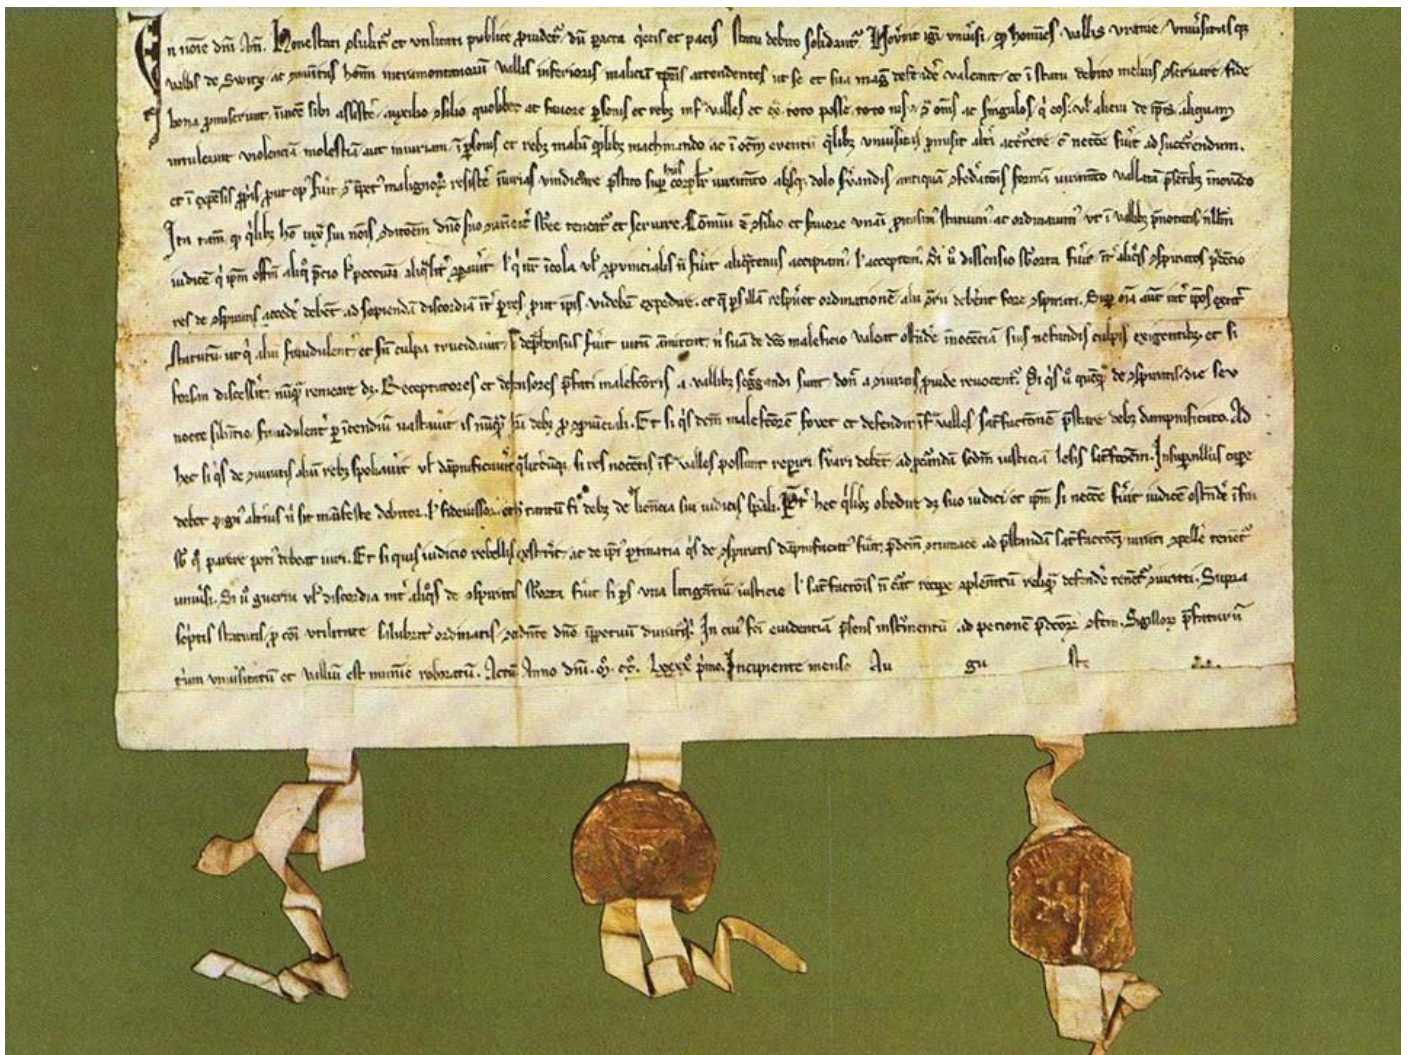 In noie dni Am. Honestati ꝯsulit᷑ et utilitati publice ꝓuidet᷑ dū pacta q̇etis et pacis statu debito solidant᷑. Nov̄int igi᷑ vniu̇si ꝙ hoiēs vallis vranie vniu̇sitas qꝫ
vallis de Switz ac ꝯmunitas hoīm intramontanorū vallis inferioris maliciā tꝑis attendentes ut se et sua mag̓ defēde᷑ valeant et ī statu debito melius ꝯseruare fide
bona ꝓmiserunt īuicē sibi assiste᷑ auxilio ꝯsilio quolibet ac fauore ꝑsonis et rebꝫ inf᷑ valles et ex᷑ toto posse toto nisu ꝯ᷑ om̄s ac singulos q̇ eos vl᷑ alicui de ip̄is aliquam
intulerint violenciā molestiā aut iniuriam ī ꝑsonis et rebꝫ malū qd᷑libꝫ machinando ac ī om̄ē euentū q̄libꝫ vniu̇sitas ꝓmisit alt̓i accurre᷑ cū necēē fu̇it ad succurrendum
et ī expēsis ꝓpis ꝓut op᷑ fu̇it ꝯ᷑ īpet᷑ malignorꝫ resiste᷑ iniurias vindicare p̄stito suꝑ his corꝑal̓r iuramēto absqꝫ dolo s̓uandis antiquā ꝯfederatōīs formā iuramēto vallatā p̄sētibꝫ īnouādo
Ita tam̄ ꝙ q̇libꝫ hō iux᷑ sui noīs ꝯditōem dn̄o suo ꝯueniēt᷑ sb᷑ee teneat᷑ et seruire. Cōmuni ē᷑ ꝯsilio et fauore vnāi ꝓmisim᷑ statuim᷑ ac ordinauim᷑ ut ī vallibꝫ p̄notatis nll᷑m
iudicē q̇ ip̄m officm̄ aliq᷑ p̄cio l᷑ peccunia aliq᷑lit̓ ꝯparau̇it l᷑ q̇ nr̄ īcola vl᷑ ꝯꝓuincialis nō fu̇it aliq̄tenus accipiam᷑ l᷑ acceptem᷑. Si u̇o dissensio sb᷑orta fu̇it int̓ aliq̇s ꝯspiratos prudēcio
res de ꝯspiratis accede᷑ debent ad sopiendā discordiā int̓ ꝑtes ꝓut ip̄is videbit᷑ expedire et q̄ ꝑs illā respu̇et ordinationē alii ꝯ᷑rii deberēt fore ꝯspirati. Suꝑ oīa aut̄ int̓ ip̄os exti᷑t
statutū ut q̇ aliū fraudulent᷑ et sn̄ culpa trucidau̇it si dep̄hensus fu̇it vitā āmittat nisi suā de dco maleficio valeat ostende᷑ īnocēciā suis nefandis culpis exigentibꝫ et si
forsan discesserit nūq̄ remeare dꝫ. Receptatores et defensores p̄fati malefcōris a vallibꝫ seg̓gandi sunt don̄ a ꝯiuratis ꝓuide reuocent᷑. Si q̇s u̇o quēq̄ de ꝯspiratis die seu
nocte silētio fraudulent᷑ ꝑ īcendiū vastau̇it is nūq̄ h̄ri debꝫ ꝓ ꝯꝓuīciali. Et si q̇s dcm̄ malefcōrē fouet et defendit inf᷑ valles satisfactionē p̄stare debꝫ dampnificato. Ad
hec si q̇s de ꝯiuratis aliū rebꝫ spoliau̇it vl᷑ dāpnificau̇it q̄lit̓cūqꝫ si res nocētis inf᷑ valles possunt reperiri s̓uari debēt ad ꝓcurandā scdm̄ iusticiā lesis satisfactōem. Insuꝑ nullus cape᷑
debet pign᷑ alterius nisi sit manifeste debitor l᷑ fideiussor et h̄ tantū fieri debꝫ de licēcia sui iudicis spāli. Pret᷑ hec q̇libꝫ obedire dꝫ suo iudici et ip̄m si necēē fu̇it iudicē ostende᷑ īfra
sb᷑ q᷑ parere poti᷑ debeat iuri. Et si quis iudicio rebellis exstiterit ac de ip̄i᷑ ꝑtinatia q̇s de ꝯspiratis dāpnificat᷑ fu̇it p̄dcm̄ ꝯtumacē ad p̄standā satisfactōem iurati ꝯpelle᷑ tenent᷑
vniu̇si. Si u̇o guerra vl᷑ discordia int̓ aliq̇s de ꝯspiratis sb᷑orta fu̇it si ꝑs vna litigantiū iusticie l᷑ satisfactōīs nō curat recipe᷑ ꝯplemētū reliquā defende᷑ tenent᷑ ꝯiurati. Supra
sc̓ptis statutis ꝓ cōi utilitate salubrit̓ ordinatis ꝯcedēte dn̄o īꝑpetuū duraturis. In cui᷑ fcī euidentiā p̄sens instrumentū ad peticionē p̄dcōrꝫ ꝯfectm̄ Sigillorꝫ p̄fatarꝫ
trium vniu̇sitatū et valliū est munimīe roboratū. Actū Anno dn̄i. M. CC. LXXXX p̄mo. Incipiente mense Au gu sto